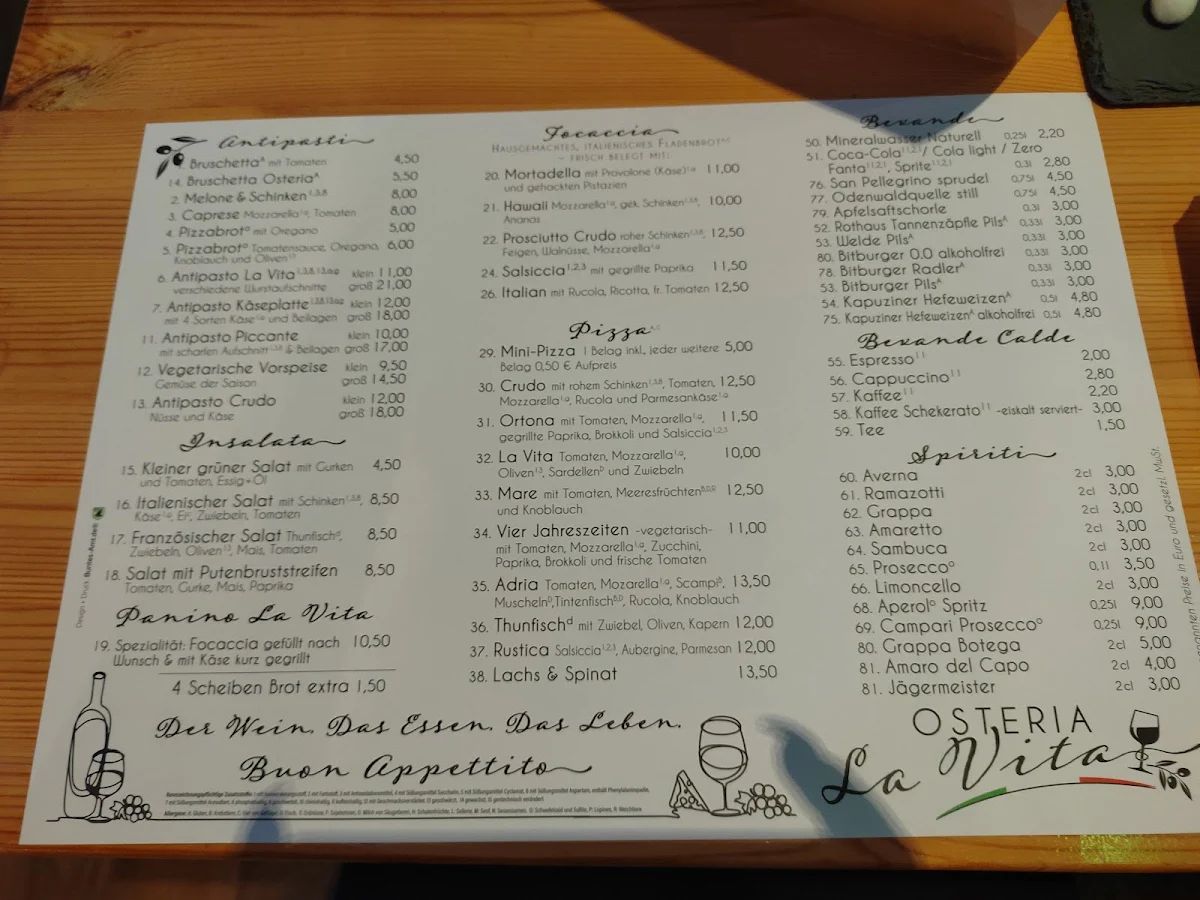 Antipasti
Bruschettaᴬ mit Tomaten 4,50
14. Bruschetta Osteriaᴬ 5,50
2. Melone & Schinken 1,3,8 8,00
3. Caprese Mozzarella, Tomaten 8,00
4. Pizzabrot mit Oregano 5,00
5. Pizzabrot Tomatensauce, Oregano, 6,00
Knoblauch und Oliven
6. Antipasto La Vita klein 11,00
verschiedene Wurstaufschnitte groß 21,00
7. Antipasto Käseplatte klein 12,00
mit 4 Sorten Käse und Beilagen groß 18,00
11. Antipasto Piccante klein 10,00
mit scharfen Aufschnitt & Beilagen groß 17,00
12. Vegetarische Vorspeise klein 9,50
Gemüse der Saison groß 14,50
13. Antipasto Crudo klein 12,00
Nüsse und Käse groß 18,00
Insalata
15. Kleiner grüner Salat mit Gurken 4,50
und Tomaten, Essig+Öl
16. Italienischer Salat mit Schinken 1,3,8, 8,50
Käse, Ei, Zwiebeln, Tomaten
17. Französischer Salat Thunfisch, 8,50
Zwiebeln, Oliven, Mais, Tomaten
18. Salat mit Putenbruststreifen 8,50
Tomaten, Gurke, Mais, Paprika
Panino La Vita
19. Spezialität: Focaccia gefüllt nach 10,50
Wunsch & mit Käse kurz gegrillt
4 Scheiben Brot extra 1,50
Focaccia
Hausgemachtes, italienisches Fladenbrot
– frisch belegt mit:
20. Mortadella mit Provolone (Käse) 11,00
und gehackten Pistazien
21. Hawaii Mozzarella, gek. Schinken, 10,00
Ananas
22. Prosciutto Crudo roher Schinken, 12,50
Feigen, Walnüsse, Mozzarella
24. Salsiccia 1,2,3 mit gegrillte Paprika 11,50
26. Italian mit Rucola, Ricotta, fr. Tomaten 12,50
Pizza
29. Mini-Pizza 1 Belag inkl., jeder weitere 5,00
Belag 0,50 € Aufpreis
30. Crudo mit rohem Schinken, Tomaten, 12,50
Mozzarella, Rucola und Parmesankäse
31. Ortona mit Tomaten, Mozzarella, 11,50
gegrillte Paprika, Brokkoli und Salsiccia
32. La Vita Tomaten, Mozzarella, 10,00
Oliven, Sardellen und Zwiebeln
33. Mare mit Tomaten, Meeresfrüchten 12,50
und Knoblauch
34. Vier Jahreszeiten -vegetarisch- 11,00
mit Tomaten, Mozzarella, Zucchini,
Paprika, Brokkoli und frische Tomaten
35. Adria Tomaten, Mozarella, Scampi, 13,50
Muscheln, Tintenfisch, Rucola, Knoblauch
36. Thunfischᵈ mit Zwiebel, Oliven, Kapern 12,00
37. Rustica Salsiccia, Aubergine, Parmesan 12,00
38. Lachs & Spinat 13,50
Bevande
50. Mineralwasser Naturell 0,25l 2,20
51. Coca-Cola / Cola light / Zero
Fanta, Sprite 0,3l 2,80
76. San Pellegrino sprudel 0,75l 4,50
77. Odenwaldquelle still 0,75l 4,50
79. Apfelsaftschorle 0,3l 3,00
52. Rothaus Tannenzäpfle Pilsᴬ 0,33l 3,00
53. Welde Pilsᴬ 0,33l 3,00
80. Bitburger 0.0 alkoholfrei 0,33l 3,00
78. Bitburger Radlerᴬ 0,33l 3,00
53. Bitburger Pilsᴬ 0,33l 3,00
54. Kapuziner Hefeweizenᴬ 0,5l 4,80
75. Kapuziner Hefeweizenᴬ alkoholfrei 0,5l 4,80
Bevande Calde
55. Espresso¹¹ 2,00
56. Cappuccino¹¹ 2,80
57. Kaffee¹¹ 2,20
58. Kaffee Schekerato¹¹ -eiskalt serviert- 3,00
59. Tee 1,50
Spiriti
60. Averna 2cl 3,00
61. Ramazotti 2cl 3,00
62. Grappa 2cl 3,00
63. Amaretto 2cl 3,00
64. Sambuca 2cl 3,00
65. Prosecco 0,1l 3,50
66. Limoncello 2cl 3,00
68. Aperol Spritz 0,25l 9,00
69. Campari Prosecco 0,25l 9,00
80. Grappa Botega 2cl 5,00
81. Amaro del Capo 2cl 4,00
81. Jägermeister 2cl 3,00
Preise in Euro und gesetzl. MwSt.
Design + Druck: Buntes-Amt.de
Der Wein. Das Essen. Das Leben.
Buon Appettito
OSTERIA
La Vita